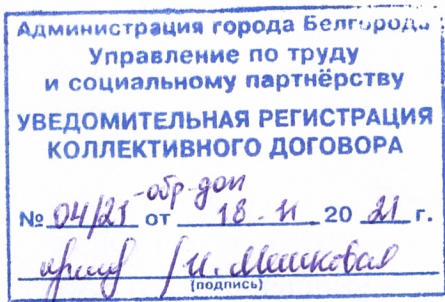 Администрация города Белгорода
Управление по труду
и социальному партнёрству
УВЕДОМИТЕЛЬНАЯ РЕГИСТРАЦИЯ
КОЛЛЕКТИВНОГО ДОГОВОРА
-обр-доп
№ 04/21 от 18.11 2021 г.
/И. Мишковая
(подпись)